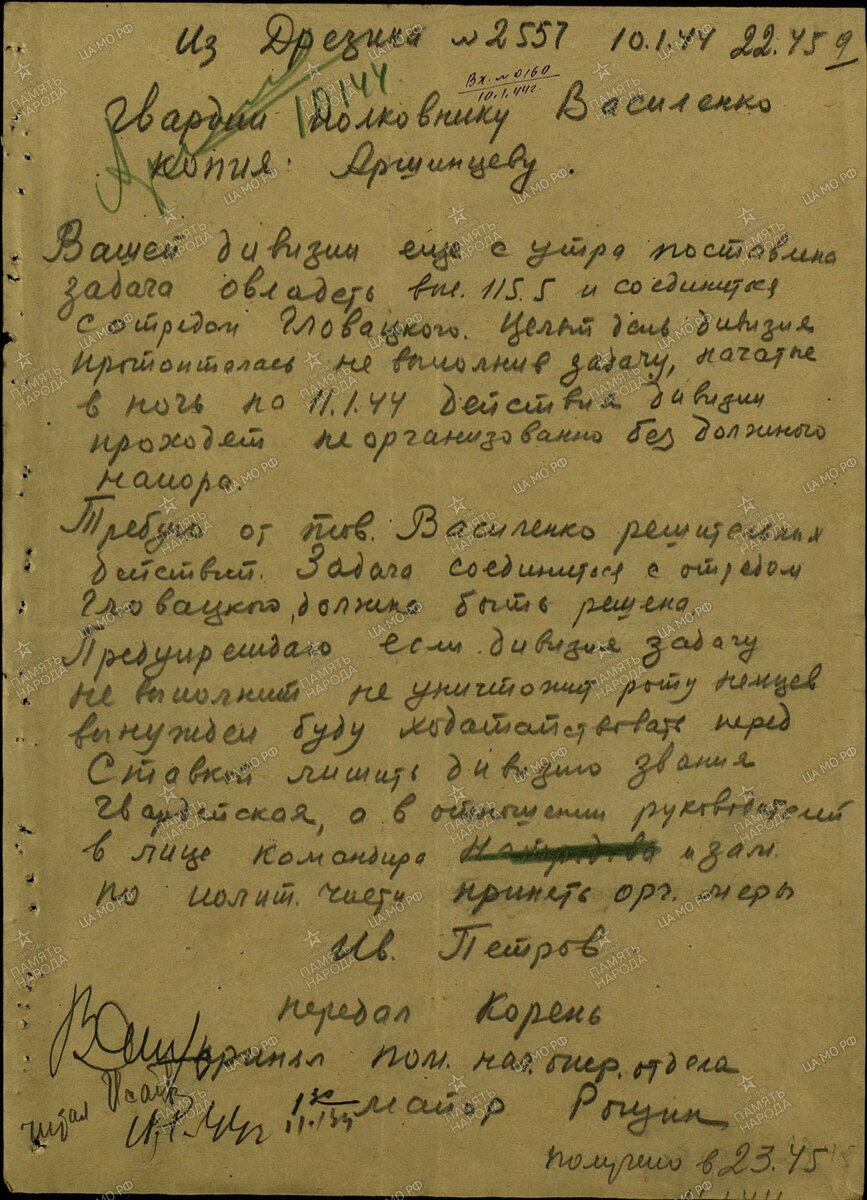 Из Дрезина №2557 10.1.44 22.45 9
Вх. №0160
10.1.44г.
10 1 44
Гвардии полковнику Василенко
Копия: Аршинцеву.
Вашей дивизии еще с утра поставлена
задача овладеть выс. 115.5 и соединиться
с отрядом Гловацкого. Целый день дивизия
протопталась не выполнив задачу, начатые
в ночь на 11.1.44 действия дивизии
проходят неорганизованно без должного
напора.
Требую от тов. Василенко решительных
действий. Задача соединиться с отрядом
Гловацкого, должна быть решена
Предупреждаю если дивизия задачу
не выполнит не уничтожит роту немцев
вынужден буду ходатайствовать перед
Ставкой лишить дивизию звания
Гвардейская, а в отношении руководителей
в лице командира и зам.
по полит. части принять орг. меры
Ив. Петров
передал Корень
принял пом. нач. опер. отдела
майор Рощин
читал
1 30
11.1.44
11.1.44г
получено в 23.45